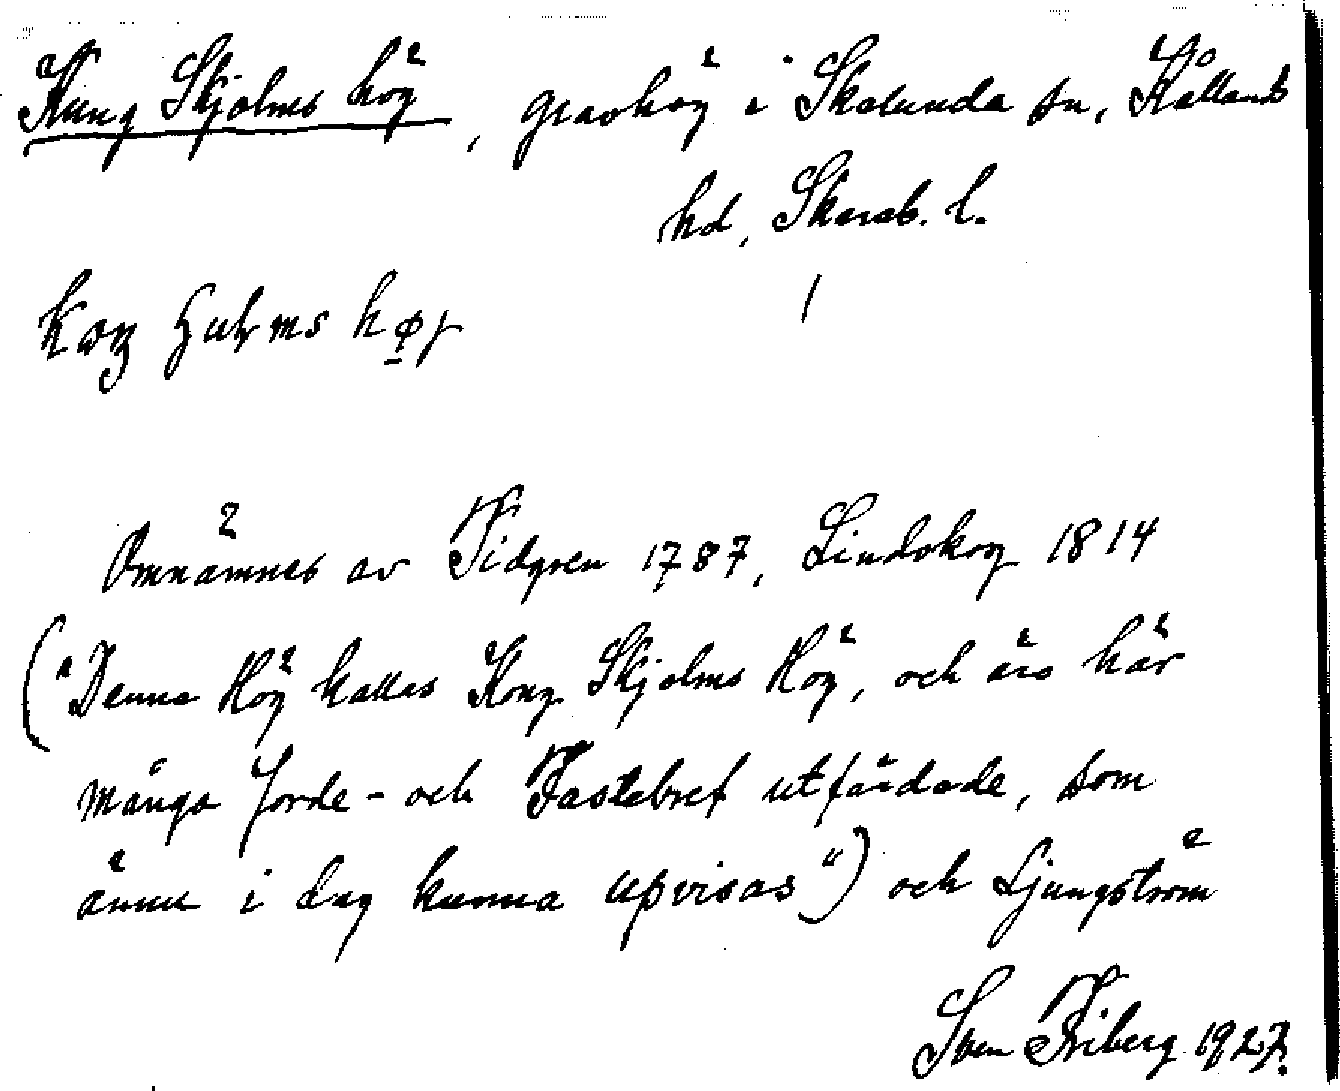 Kung Skjolms hög, gravhög i Skalunda sn, Kållands
hd, Skarab. l.
høɟ
Omnämnes av Tidgren 1787, Lindskog 1814
("Denna Hög kallas Kong Skjolms Hög, och äro här
många Jorde- och Fastebref utfärdade, som
ännu i dag kunna upvisas") och Ljungström
Sven Friberg 1927.